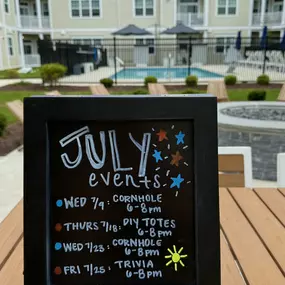 JULY
events:
WED 7/9: CORNHOLE
6-8pm
THURS 7/18: DIY TOTES
6-8pm
WED 7/23: CORNHOLE
6-8pm
FRI 7/25: TRIVIA
6-8pm